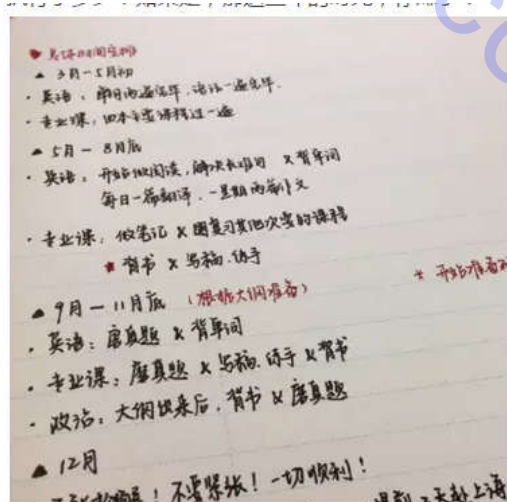 总体时间安排
▲ 3月-5月初
· 英语：单词两遍完毕，语法一遍完毕.
· 专业课：四本主要课程过一遍
▲ 5月 - 8月底
· 英语：开始做阅读，解决长难句 & 背单词
每日一篇翻译，一星期两篇作文
· 专业课：做笔记 & 复习其他次要的课程
★ 背书 & 写稿、练手
▲ 9月 - 11月底 （根据大纲准备）
* 开始准备
· 英语：磨真题 & 背单词
· 专业课：磨真题 & 写稿、练手 & 背书
· 政治：大纲出来后，背书 & 磨真题
▲ 12月
！不要紧张！一切顺利！
天赴上海